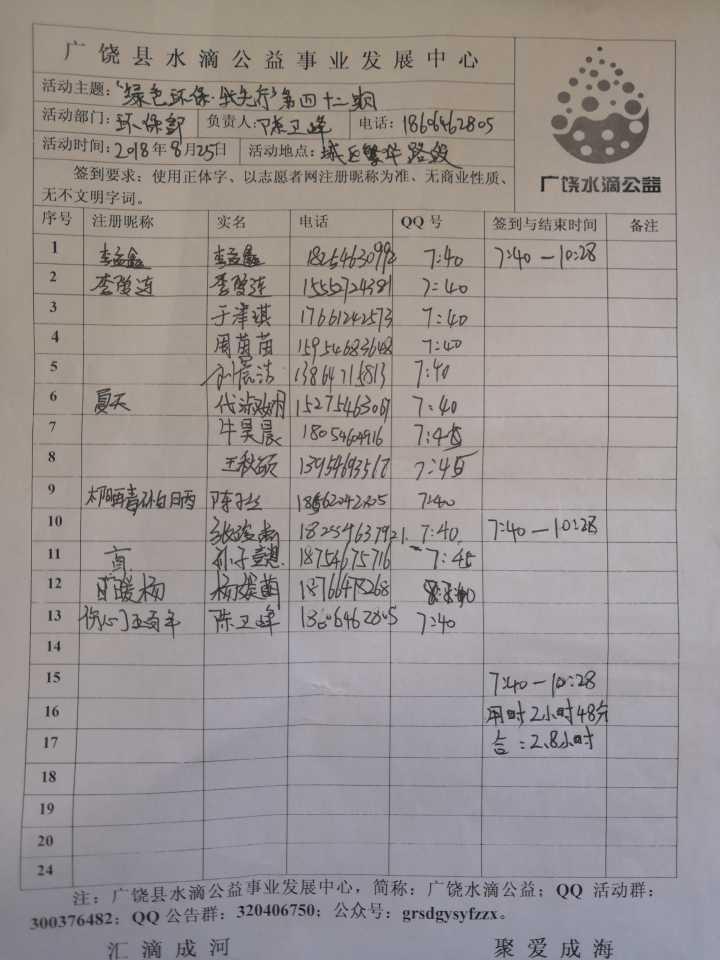 广饶县水滴公益事业发展中心
活动主题：“绿色环保·我先行”第四十二期
活动部门：环保部 负责人：陈卫峰 电话：18606462805
活动时间：2018年8月25日 活动地点：城区繁华路段
签到要求：使用正体字、以志愿者网注册昵称为准、无商业性质、
无不文明字词。
广饶水滴公益
序号 注册昵称 实名 电话 QQ号 签到与结束时间 备注
1 李孟鑫 李孟鑫 18254630992 7:40 7:40—10:28
2 15552724381 7:40
3 于津琪 17661242573 7:40
4 周茵苗 15954683648 7:40
5 刘宸浩 13864715813 7:40
6 夏天 代淑娟 15275463067 7:40
7 牛昊晨 18054604916 7:45
8 王秋硕 13954693517 7:45
9 18562042805 7:40
10 18254637921 7:40 7:40—10:28
11 真 18754675716 7:45
12 杨媛茵 18766478268
13 陈卫峰 18606462805 7:40
14
15 7:40—10:28
16 用时2小时48分
17 合：2.8小时
18
19
20
24
注：广饶县水滴公益事业发展中心，简称：广饶水滴公益；QQ 活动群：
300376482；QQ公告群：320406750；公众号：grsdgysyfzzx。
汇滴成河 聚爱成海